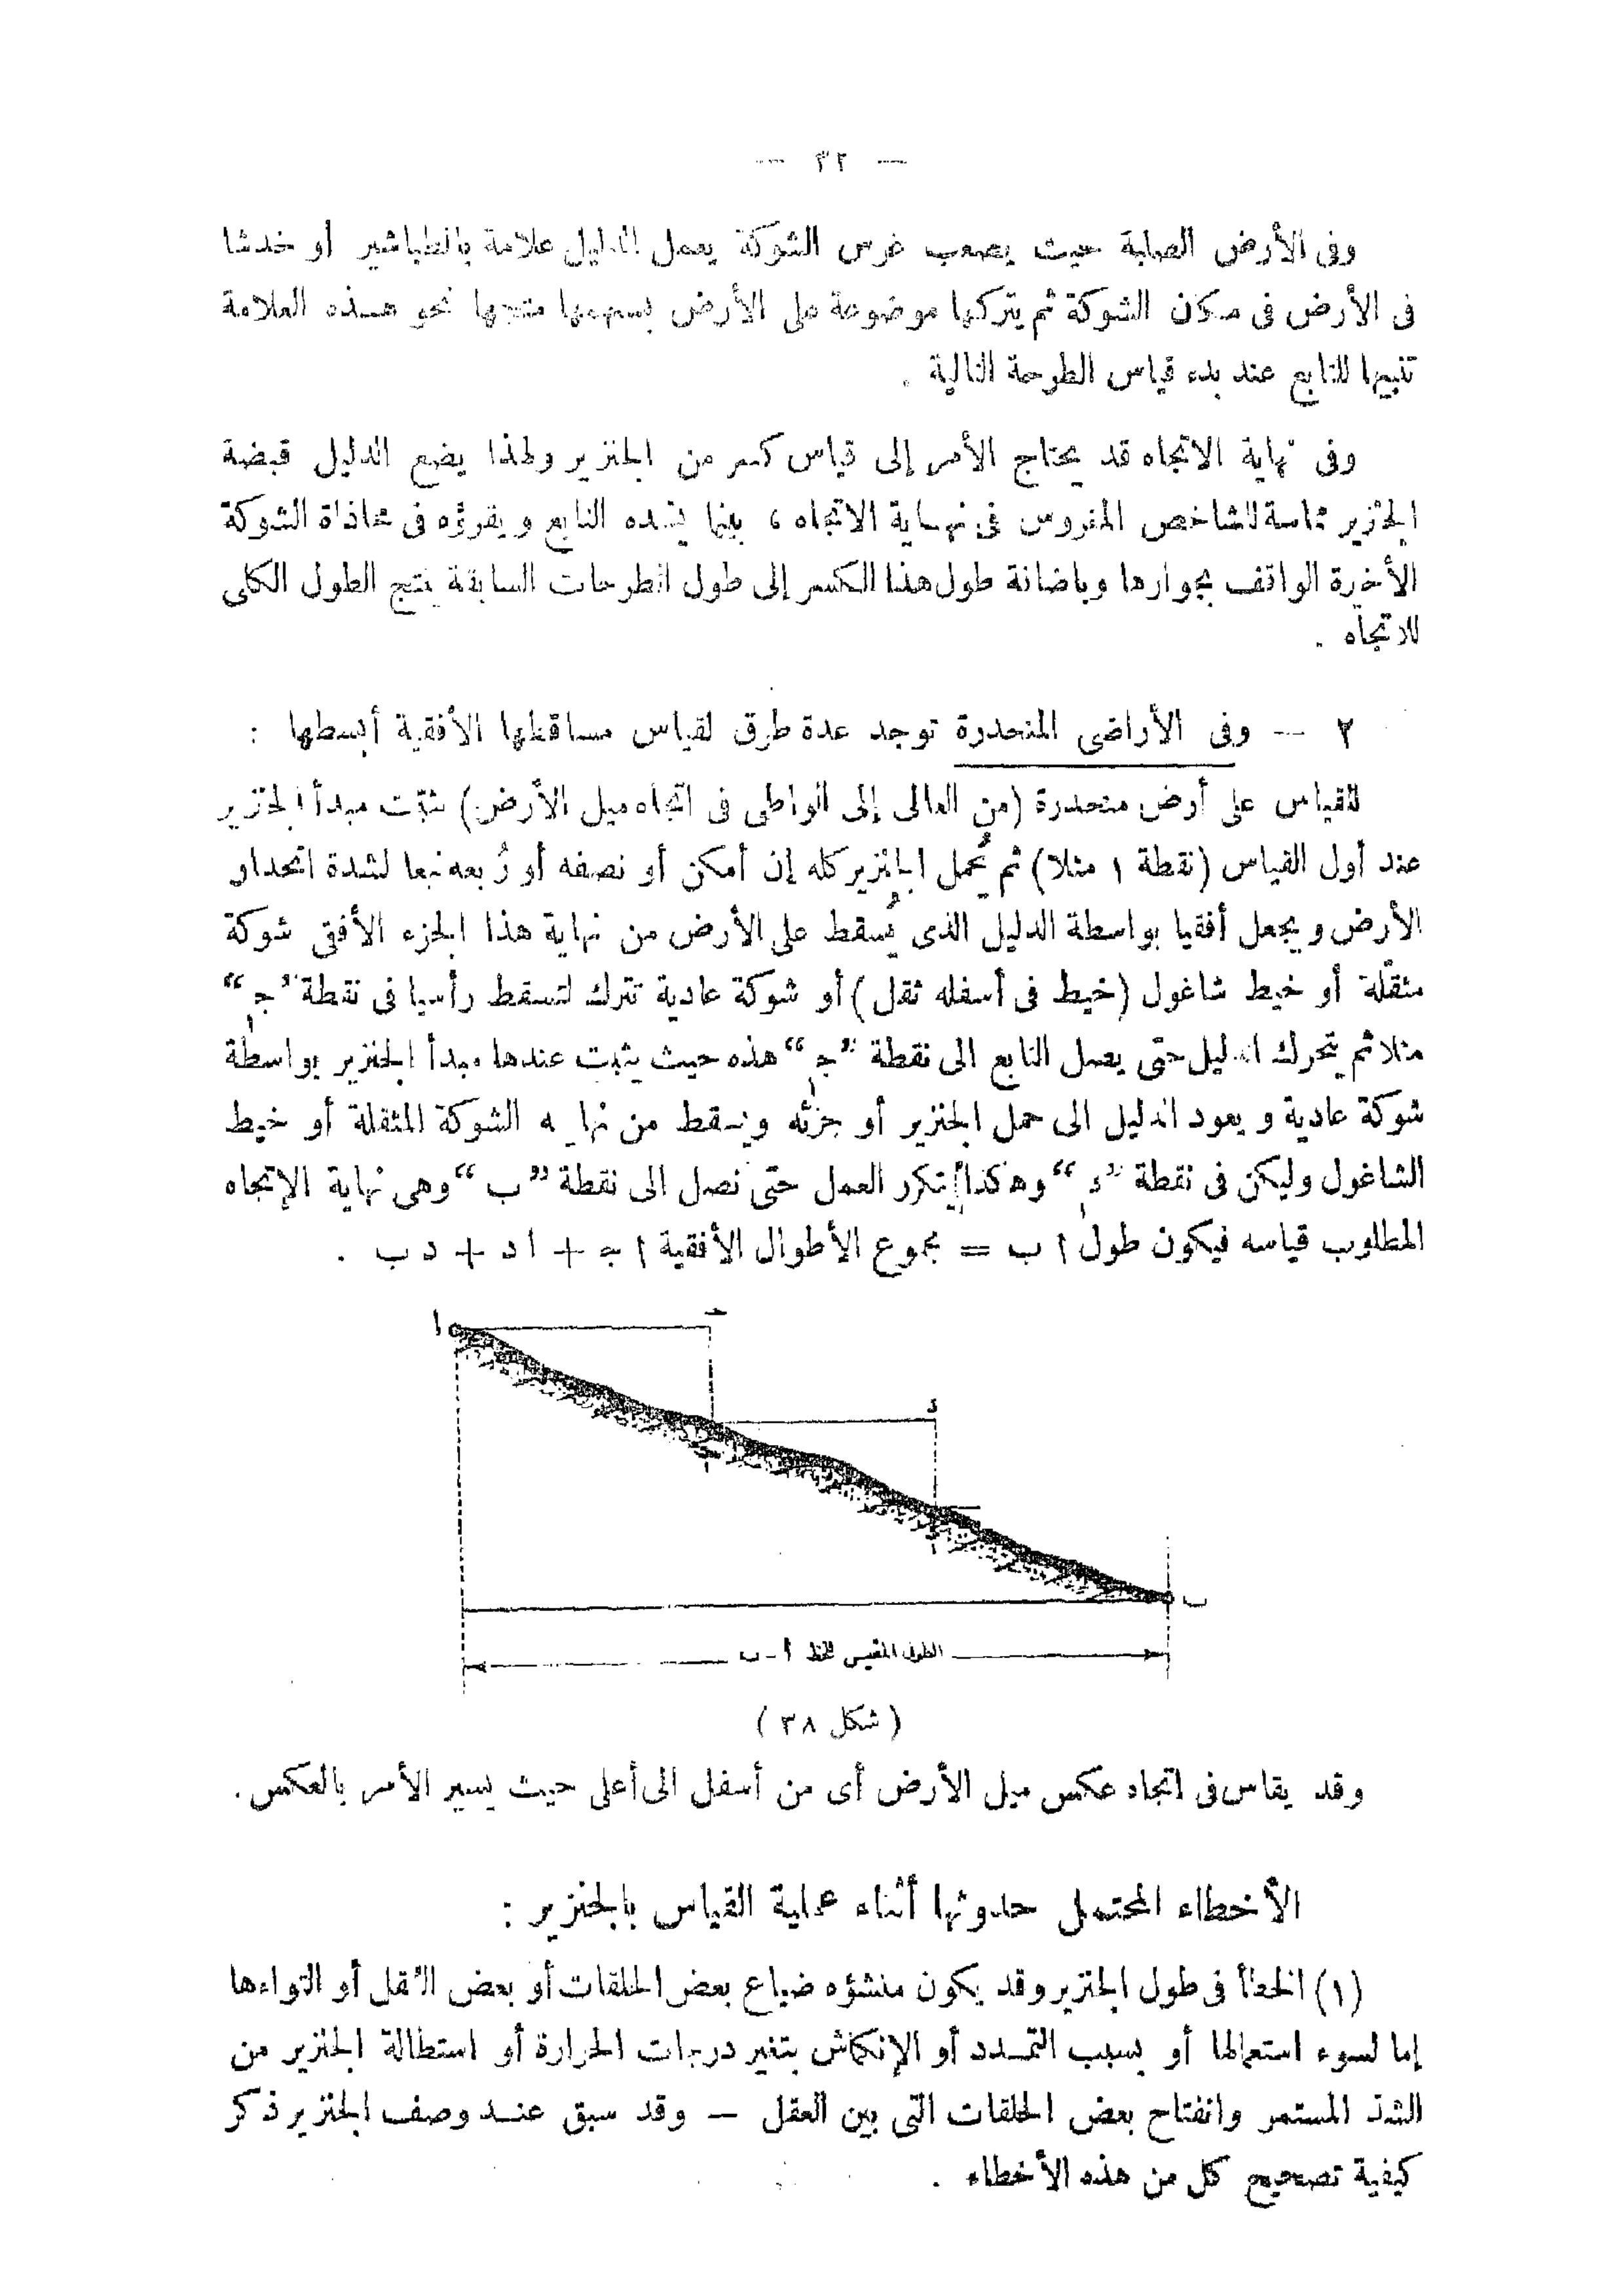 — ٣٢ —
وفى الأرض الصلبة حيث يصعب غرس الشوكة يعمل الدليل علامة بالطباشير أو خدشا
فى الأرض فى مكان الشوكة ثم يتركها موضوعة على الأرض بسهمها متجها نحو هذه العلامة
تنبيها للتابع عند بدء قياس الطرحة التالية .
وفى نهاية الاتجاه قد يحتاج الأمر إلى قياس كسر من الجنزير ولهذا يضع الدليل قبضة
الجنزير مماسة للشاخص المغروس فى نهاية الاتجاه ، بينما يشده التابع ويقرؤه فى محاذاة الشوكة
الأخيرة الواقف بجوارها وباضافة طول هذا الكسر إلى طول الطرحات السابقة ينتج الطول الكلى
للاتجاه .
٢ — وفى الأراضى المنحدرة توجد عدة طرق لقياس مساقطها الأفقية أبسطها :
للقياس على أرض منحدرة (من العالى إلى الواطى فى اتجاه ميل الأرض) نثبّت مبدأ الجنزير
عند أول القياس (نقطة ١ مثلا) ثم يُحمل الجنزير كله إن أمكن أو نصفه أو رُبعه تبعا لشدة انحدار
الأرض ويجعل أفقيا بواسطة الدليل الذى يُسقط على الأرض من نهاية هذا الجزء الأفقى شوكة
مثقّلة أو خيط شاغول (خيط فى أسفله ثقل) أو شوكة عادية تترك لتسقط رأسيا فى نقطة ”جـ“
مثلا ثم يتحرك الدليل حتى يصل التابع الى نقطة ”جـ“ هذه حيث يثبت عندها مبدأ الجنزير بواسطة
شوكة عادية ويعود الدليل الى حمل الجنزير أو جزئه ويسقط من نهايته الشوكة المثقلة أو خيط
الشاغول وليكن فى نقطة ”د“ وهكذا يتكرر العمل حتى نصل الى نقطة ”ب“ وهى نهاية الإتجاه
المطلوب قياسه فيكون طول ا ب = مجموع الأطوال الأفقية ا جـ + ا د + د ب .
ا
حـ
د
ب
الطول المقيس للخط ا - ب
( شكل ٣٨ )
وقد يقاس فى اتجاه عكس ميل الأرض أى من أسفل الى أعلى حيث يسير الأمر بالعكس .
الأخطاء المحتمل حدوثها أثناء عملية القياس بالجنزير :
(١) الخطأ فى طول الجنزير وقد يكون منشؤه ضياع بعض الحلقات أو بعض العقل أو التواءها
إما لسوء استعمالها أو بسبب التمدد أو الإنكماش بتغير درجات الحرارة أو استطالة الجنزير من
الشد المستمر وانفتاح بعض الحلقات التى بين العقل — وقد سبق عند وصف الجنزير ذكر
كيفية تصحيح كل من هذه الأخطاء .